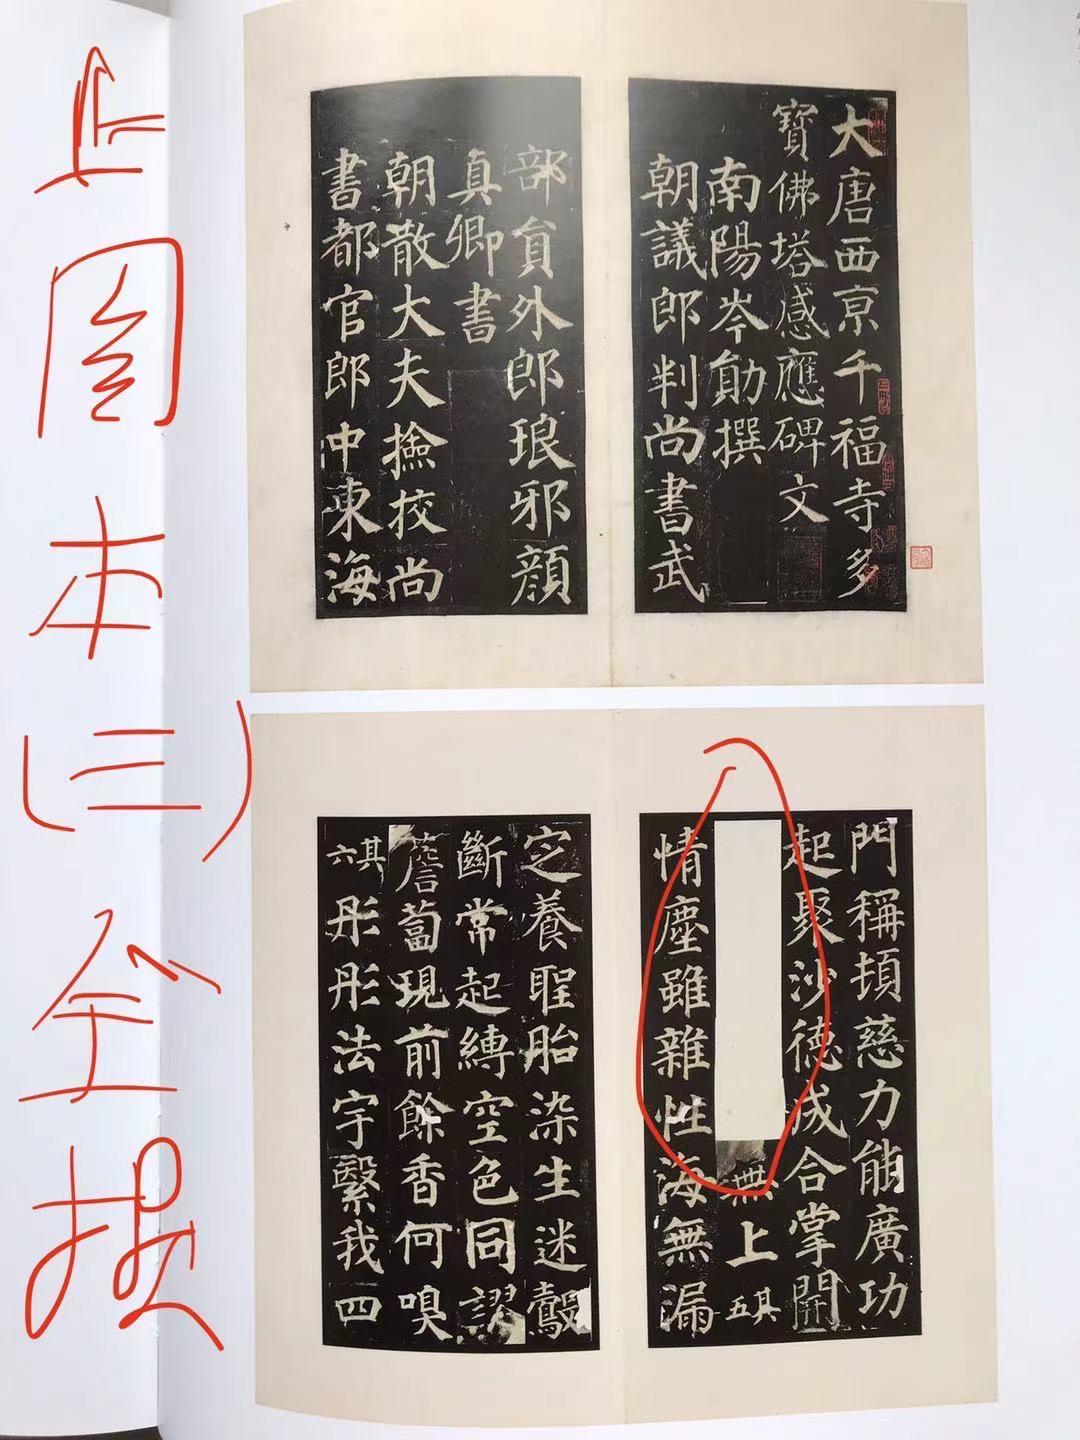 上图本(三)全损
大唐西京千福寺多
寶佛塔感應碑文
南陽岑勛撰
朝議郎判尚書武
部貟外郎琅邪顔
真卿書
朝散大夫撿挍尚
書都官郎中東海
門稱頂慈力能廣功
起聚沙德成合掌開
無上其五
情塵雖雜性海無漏
定養聖胎染生迷鷇
斷常起縛空色同謬
簷蔔現前餘香何嗅
其六
彤彤法宇繄我四